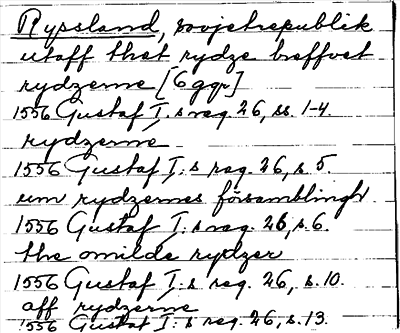 Ryssland, sovjetrepublik
utaff thet rydze breffvet
rydzerne [6 ggr]
1556 Gustaf I:s reg. 26, ss. 1-4.
rydzerne
1556 Gustaf I:s reg. 26, s. 5.
um rydzernes församblingh
1556 Gustaf I:s reg. 26, s. 6.
the omilde rydzer
1556 Gustaf I:s reg. 26, s. 10.
aff rydzerne
1556 Gustaf I:s reg. 26, s. 13.